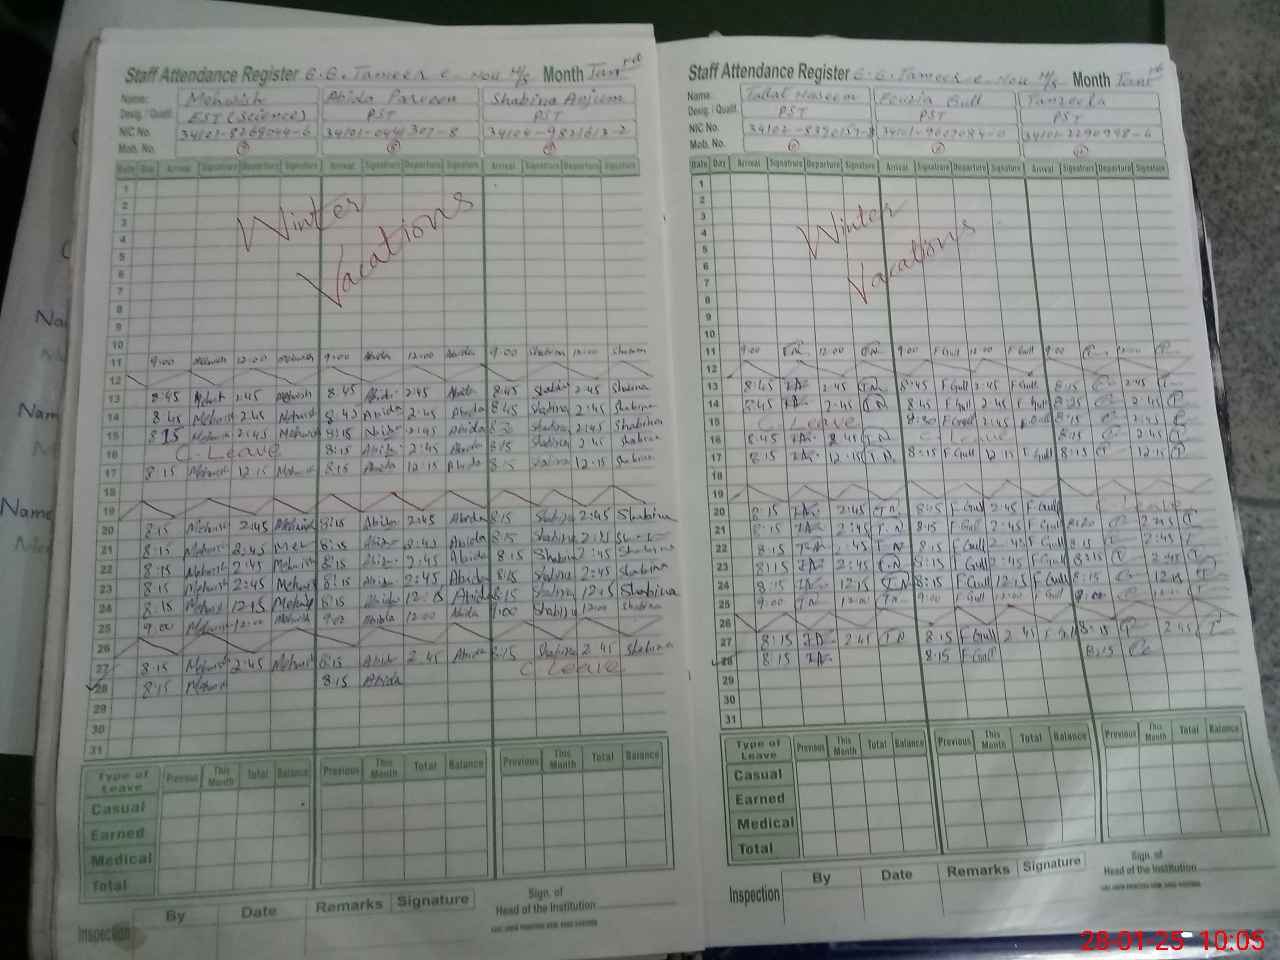 Staff Attendance Register G.G. Tameer e Nou H/S Month Jan
Name: Mehwish Abida Parveen Shabina Anjum
Desig. / Qualif. EST (Science) PST PST
NIC No. 34101-8269044-6 34101-0441307-8 34104-9821613-2
Mob. No.
Date Day Arrival Signature Departure Signature Arrival Signature Departure Signature Arrival Signature Departure Signature
1
2
3
4
5
6
7
8
9
10
Winter
Vacations
11 9:00 Mehwish 12:00 Mehwish 9:00 Abida 12:00 Abida 9:00 Shabina 12:00 Shabina
12
13 8:45 2:45 Mehwish 8:45 Abida 2:45 Abida 8:45 Shabina 2:45 Shabina
14 8:45 Mehwish 2:45 Mehwish 8:45 Abida 2:45 Abida 8:45 Shabina 2:45 Shabina
15 8:15 Mehwish 2:45 Mehwish 8:15 Abida 2:45 Abida Shabina 2:45 Shabina
16 C. Leave 8:15 Abida 2:45 Abida 8:15 Shabina 2:45 Shabina
17 8:15 Mehwish 12:15 Mehwish 8:15 Abida 12:15 Abida 8:15 Shabina 12:15 Shabina
18
19
20 8:15 Mehwish 2:45 Mehwish 8:15 Abida 2:45 Abida 8:15 Shabina 2:45 Shabina
21 8:15 Mehwish 2:45 8:15 Abida 2:45 Abida 8:15 Shabina
22 8:15 Mehwish 2:45 Mehwish 8:15 Abida 2:45 Abida 8:15 Shabina 2:45 Shabina
23 8:15 Mehwish 2:45 Mehwish 8:15 Abida 2:45 Abida 8:15 Shabina 2:45 Shabina
24 8:15 Mehwish 12:15 Mehwish 8:15 Abida 12:15 Abida 8:15 Shabina 12:15 Shabina
25 9:00 Mehwish 12:00 Mehwish Abida 12:00 Abida 9:00 Shabina 12:00 Shabina
26
27 8:15 Mehwish 2:45 Mehwish 8:15 Abida 2:45 Abida 8:15 Shabina 2:45 Shabina
28 8:15 Mehwish 8:15 Abida C Leave
29
30
31
Type of Leave Previous This Month Total Balance Previous This Month Total Balance Previous This Month Total Balance
Casual
Earned
Medical
Total
Inspection By Date Remarks Signature Sign. of
Head of the Institution
Staff Attendance Register G.G. Tameer e Nou H/S Month Jan
Name: Naseem Fouzia Gull Tanzeela
Desig. / Qualif. PST PST PST
NIC No. 34101-9607084-0 34101-2290948-6
Mob. No.
Date Day Arrival Signature Departure Signature Arrival Signature Departure Signature Arrival Signature Departure Signature
1
2
3
4
5
6
7
8
9
10
Winter
Vacations
11 9:00 T.N 12:00 T.N 9:00 F Gull 12:00 F Gull 9:00 12:00
12
13 8:45 2:45 T.N 8:45 F Gull 2:45 F Gull 8:15 2:45
14 8:45 2:45 T.N 8:45 F Gull 2:45 F Gull 2:45
15 C. Leave 8:30 F Gull 2:45 F Gull 8:15 2:45
16 8:45 T.N C. Leave 8:15 2:45
17 8:15 12:15 T.N 8:15 F Gull 12:15 F Gull 8:15 12:15
18
19
20 8:15 2:45 T.N 8:15 F Gull 2:45 F Gull Leave
21 8:15 2:45 T.N 8:15 F Gull 2:45 F Gull 8:20 2:45
22 8:15 2:45 T.N 8:15 F Gull 2:45 F Gull 8:15 2:45
23 8:15 2:45 T.N 8:15 F Gull 2:45 F Gull 8:15 2:45
24 8:15 12:15 T.N 8:15 F Gull 12:15 F Gull 8:15 12:15
25 9:00 T.N 12:00 T.N 9:00 F Gull 12:00 F Gull
26
27 8:15 2:45 T.N 8:15 F Gull 2:45 F Gull 8:15 2:45
28 8:15 8:15 F Gull 8:15
29
30
31
Type of Leave Previous This Month Total Balance Previous This Month Total Balance Previous This Month Total Balance
Casual
Earned
Medical
Total
Inspection By Date Remarks Signature Sign. of
Head of the Institution
Name
Name
28-01-25 10:05